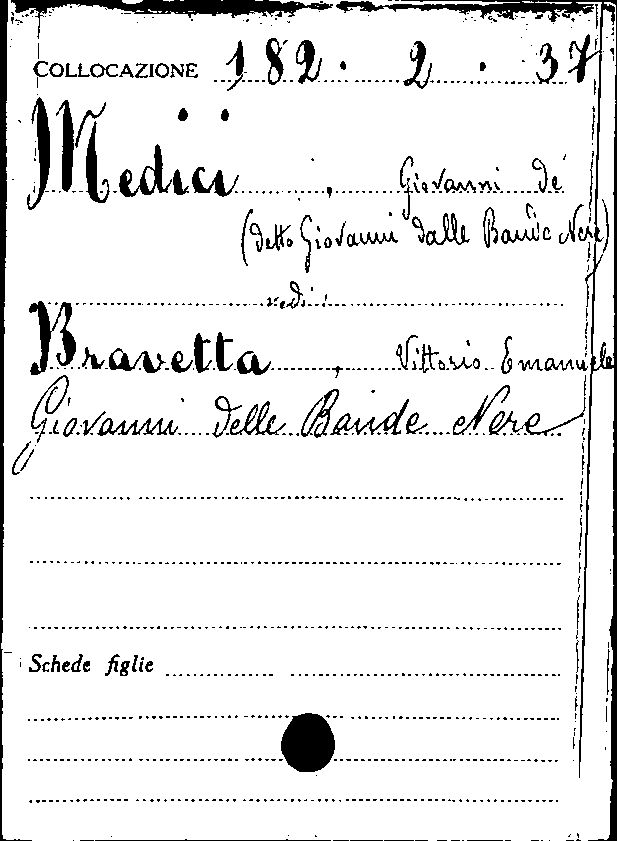 COLLOCAZIONE 182 . 2 . 37
Medici, Giovanni de'
(detto Giovanni dalle Bande Nere)
vedi:
Bravetta, Vittorio Emanuele
Giovanni delle Bande Nere
Schede figlie